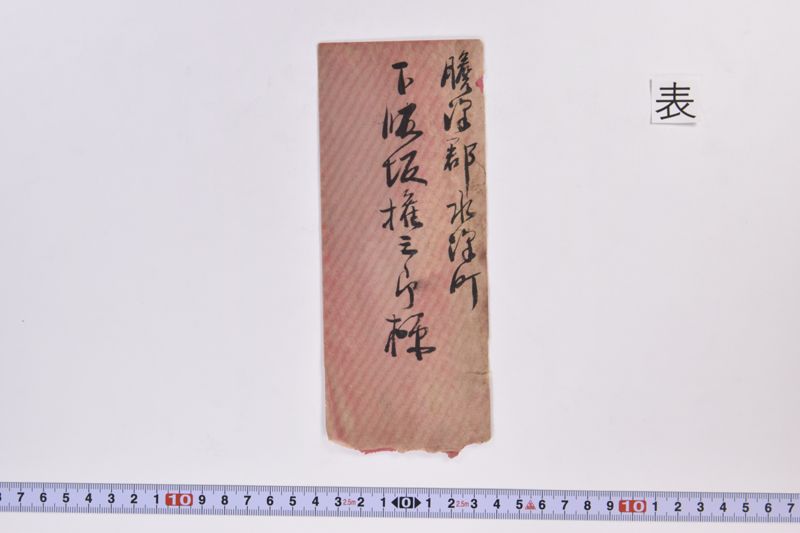 表
膽澤郡水澤町
下飯坂権三郎様
7 6 5 4 3 2 1 10 9 8 7 6 5 4 3 2.5m 2 1 0 1 2 2.5m 3 4 5 6 7 8 9 10 1 2 3 4 5 6 7